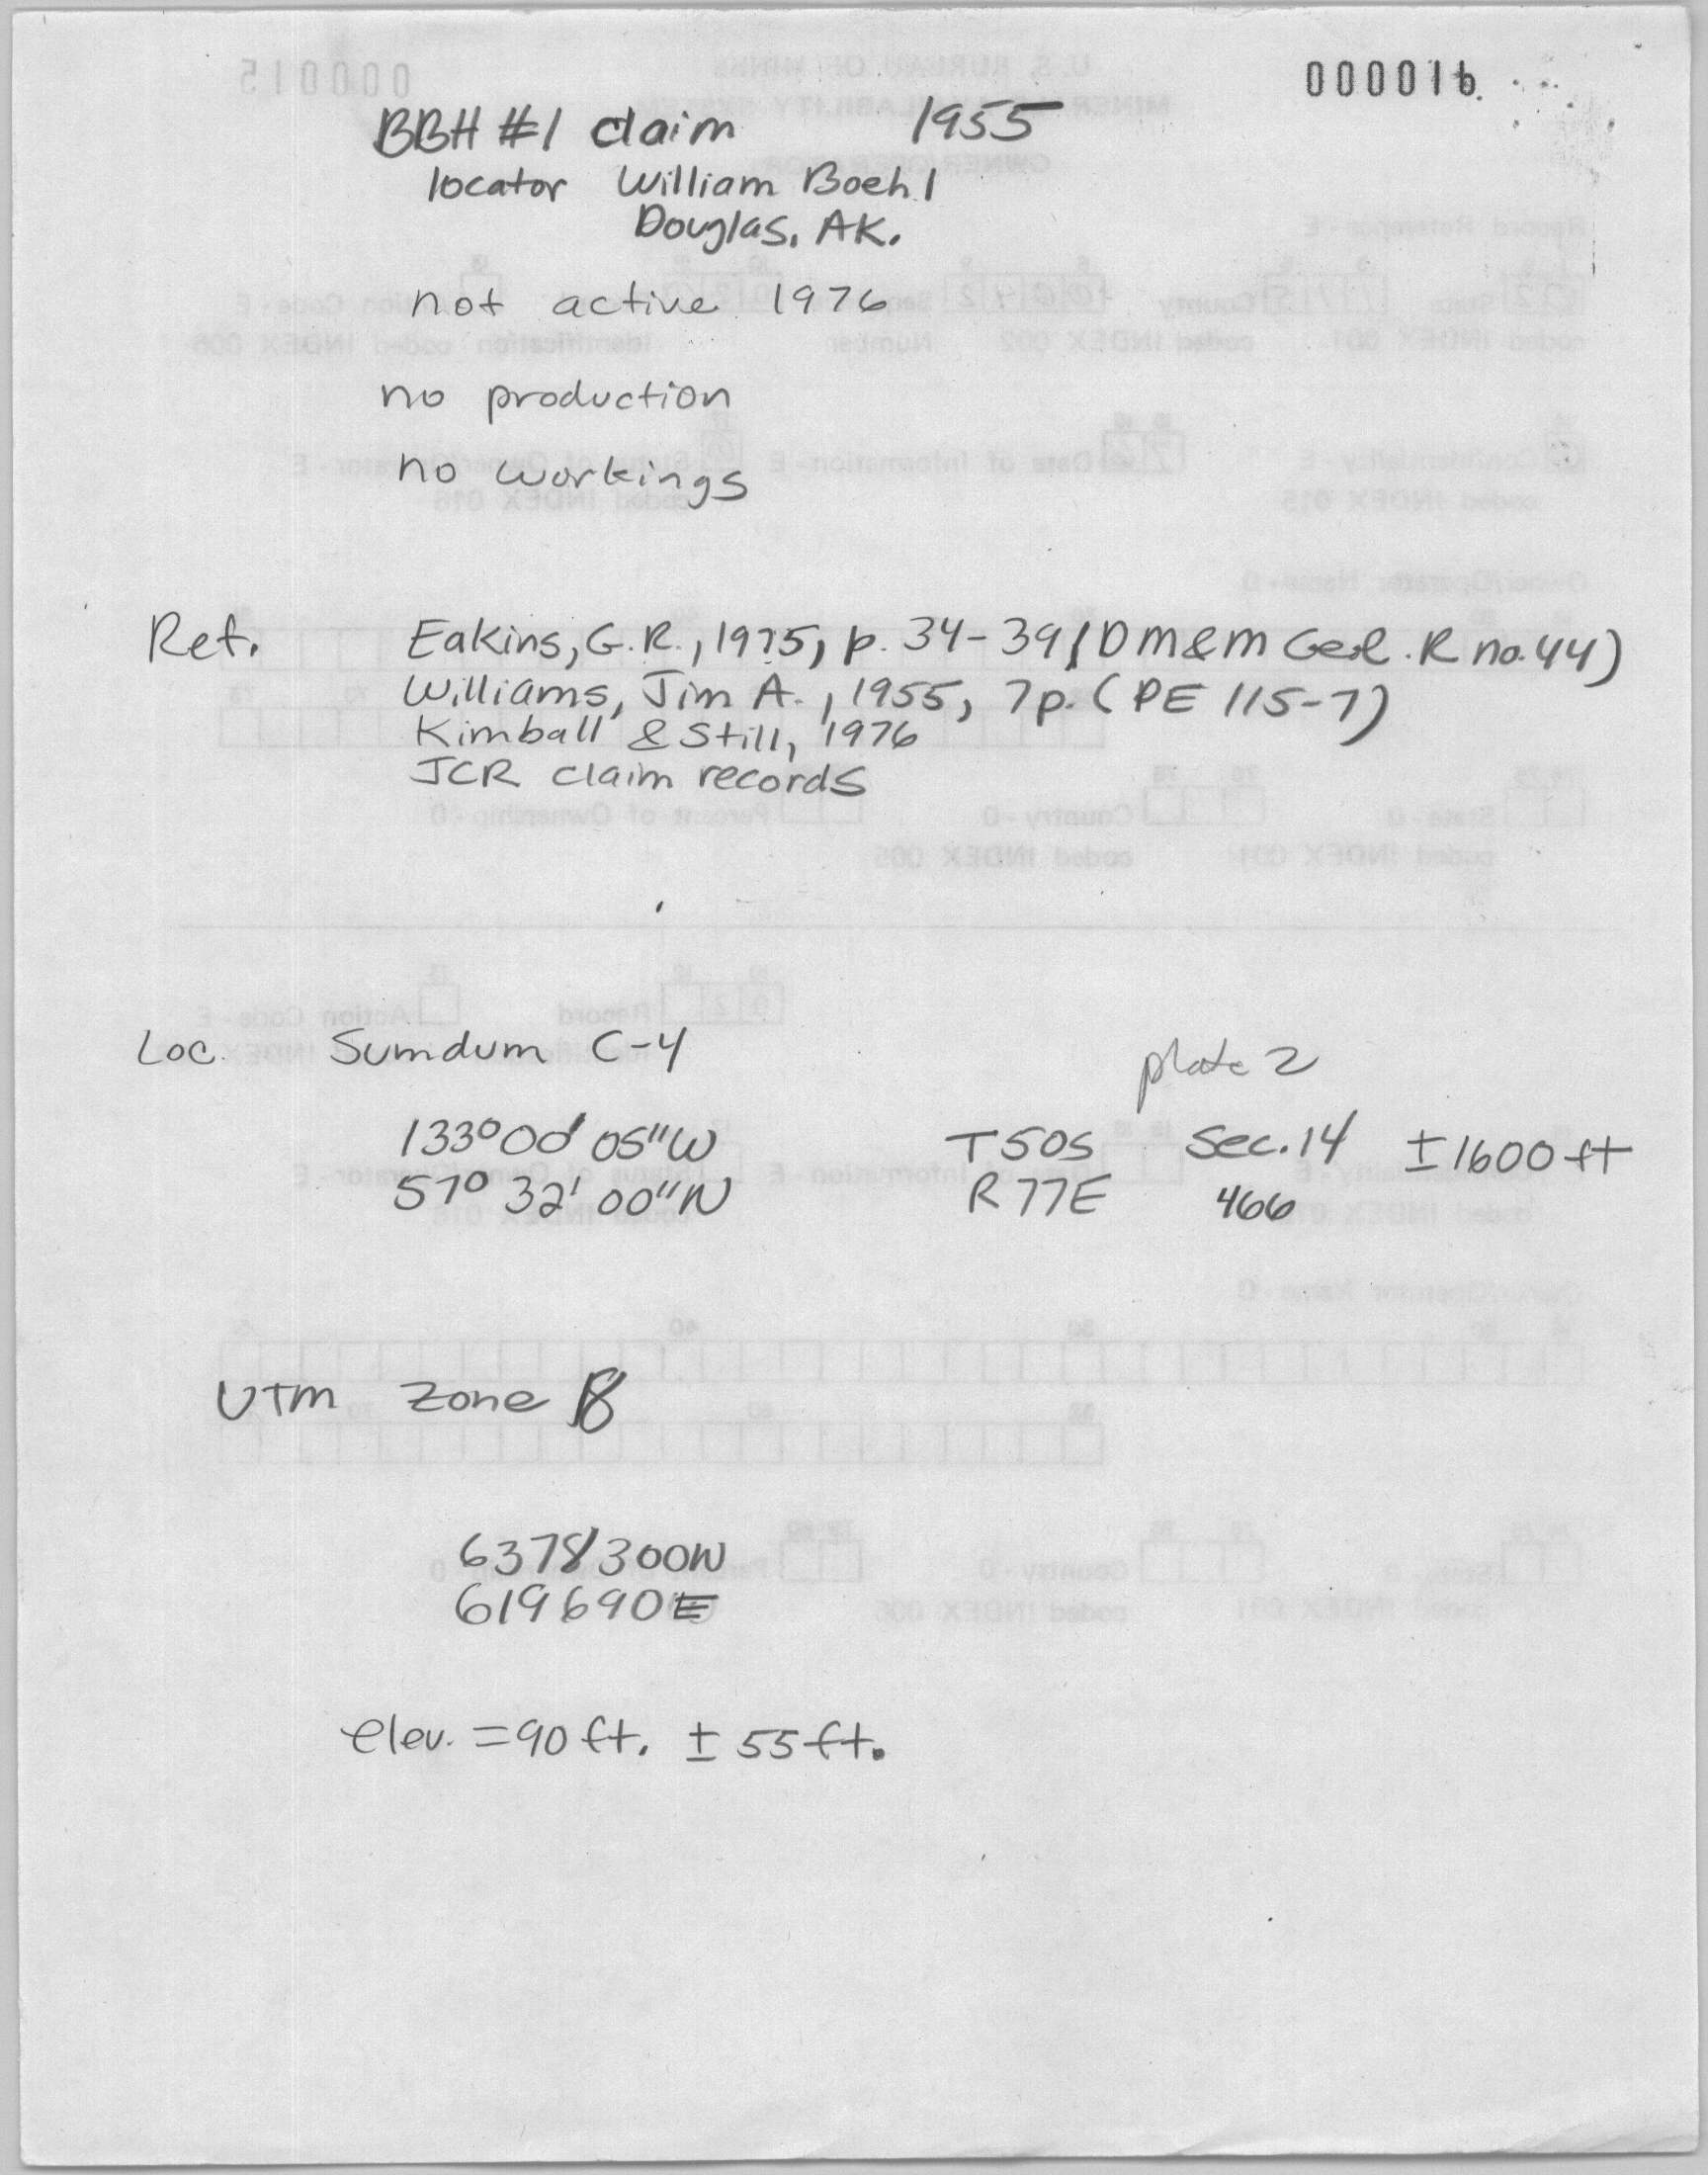 000016
BBH #1 claim 1955
locator William Boehl
Douglas, AK.
not active 1976
no production
no workings
Ref. Eakins, G.R., 1975, p. 34-39 (DM&M Geol. R no. 44)
Williams, Jim A., 1955, 7p. (PE 115-7)
Kimball & Still, 1976
JCR claim records
Loc. Sumdum C-4
plate 2
133° 00' 05" W T50S Sec. 14 ±1600 ft
57° 32' 00" N R77E 466
UTM Zone 8
6378300N
619690E
elev. = 90 ft. ± 55 ft.